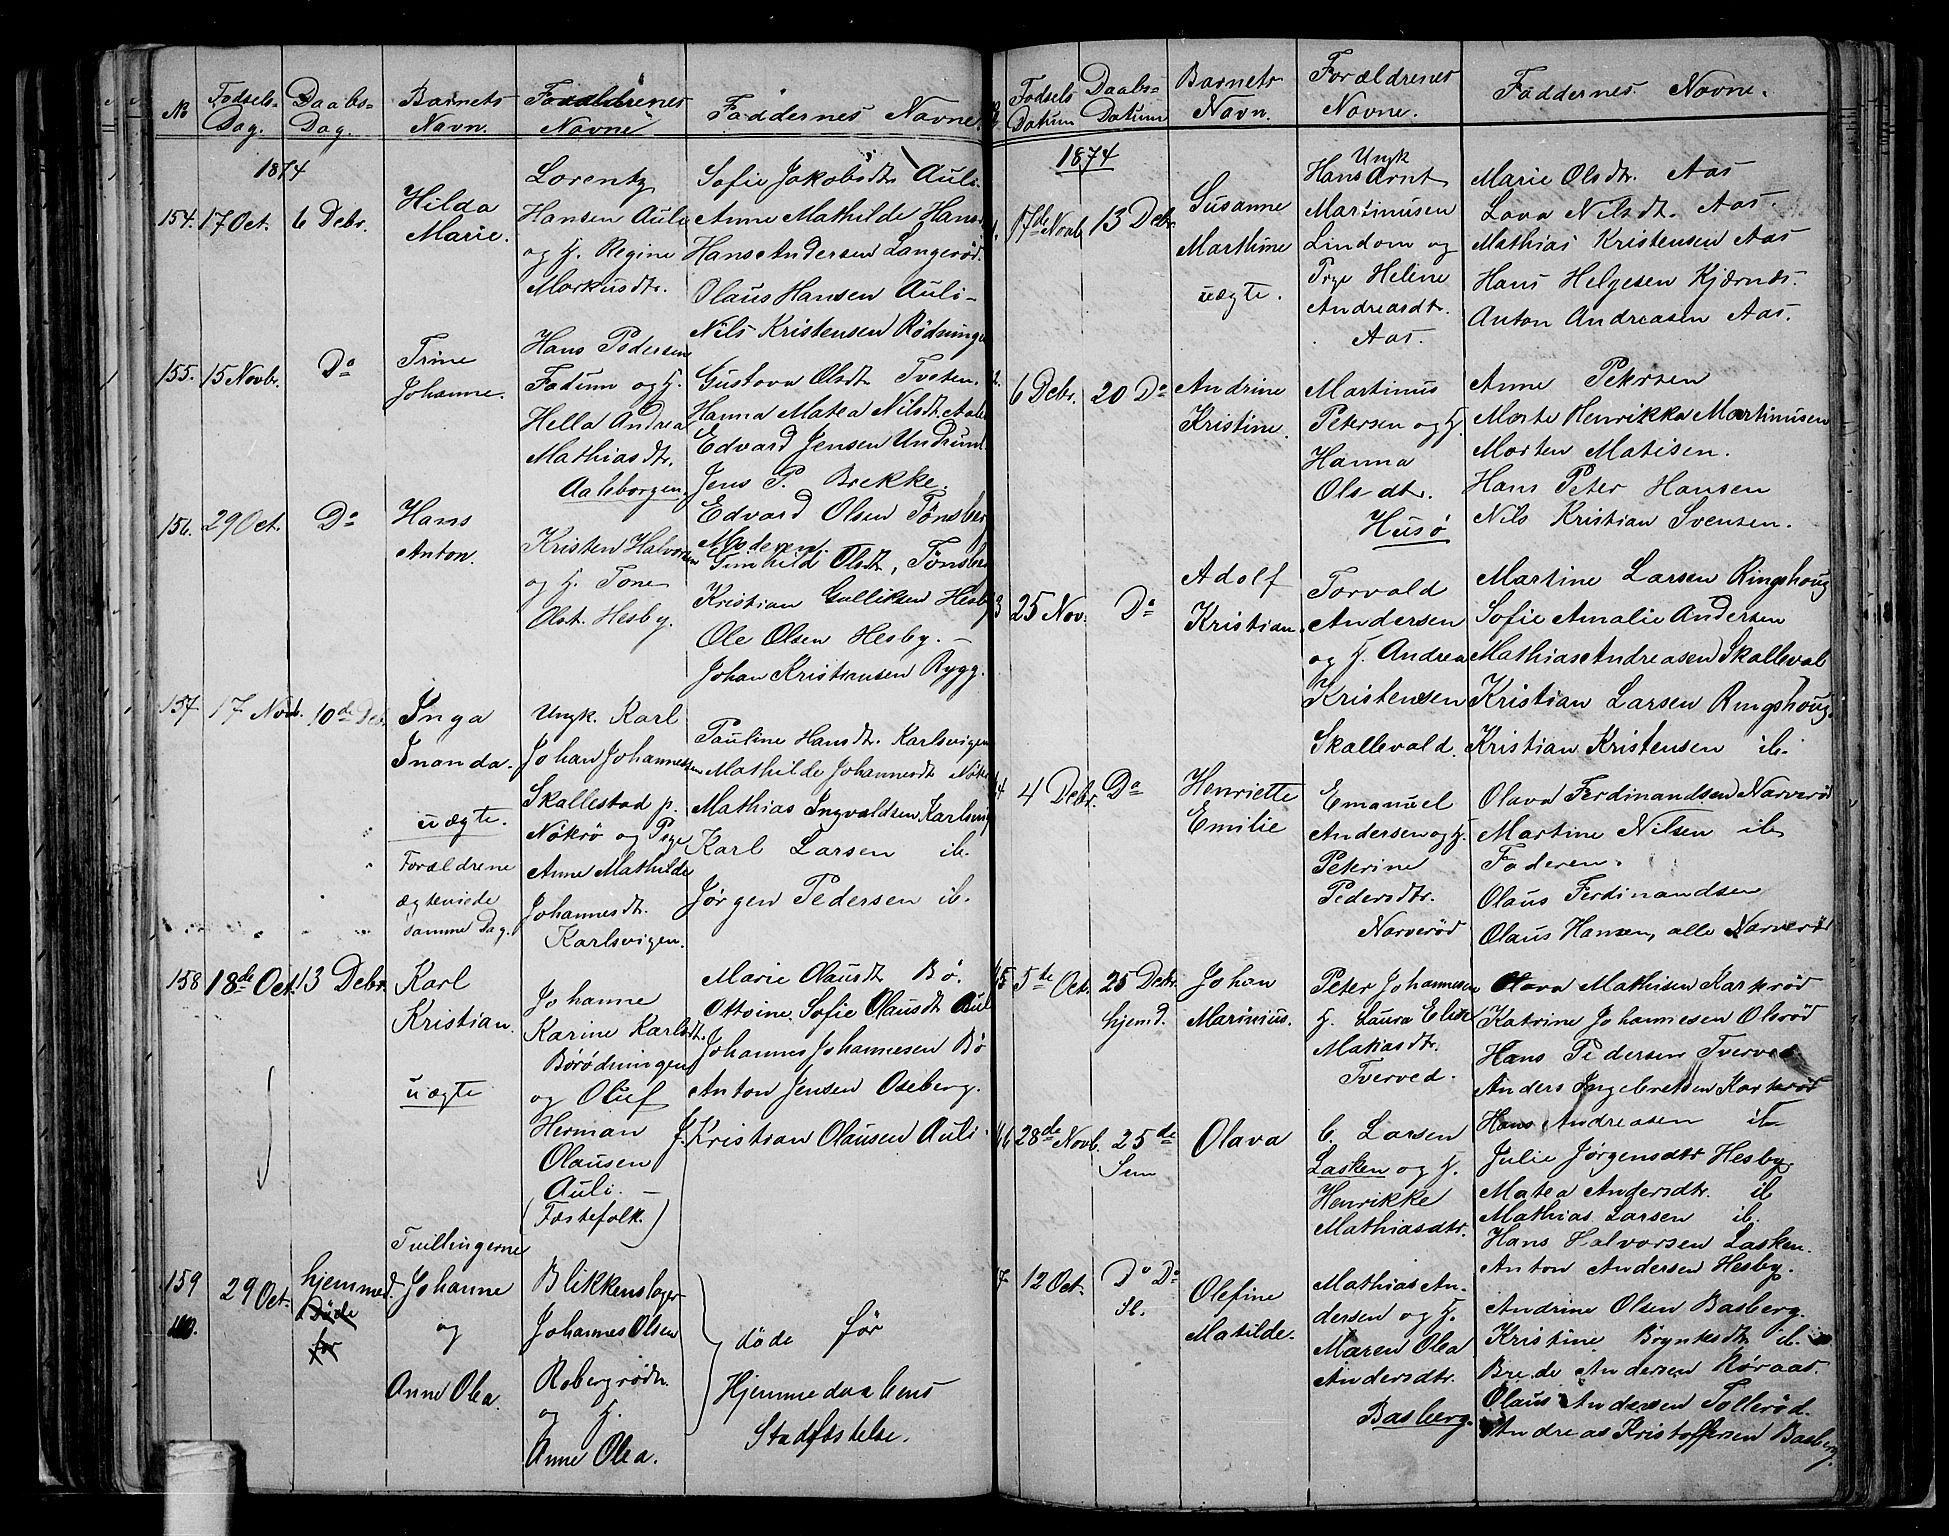 No Fødsels- Dag. Daabs- Dag. Barnets Navn. Forældrenes Navne Faddernes Navne
1874
154. 17 Oct. 6 Debr.
Hilda
Marie.
Lorentz
Hansen Auli
og H. Regine
Markusdtr.
Sofie Jakobsdtr Auli.
Anne Mathilde Hans
Hans Andersen Langerød.
Olaus Hansen Auli-
Nils Kristensen Rødsunge
155. 15 Novbr. Do
Trine
Johanne.
Hans Pedersen
Fadum og H.
Hella Andrea
Mathiasdtr.
Aaleborgen.
Gustava Olsdtr Tveten.
Hanna Matea Nilsdtr.
Edvard Jensen Undrum
Jens P. Brekke.
156. 29 Oct. Do
Hans
Anton.
Kristen Halvorsen
og H. Tone
Olst. Hesby.
Edvard Olsen Tønsber
Moderen.
Gunhild Olsdtr, Tønsber
Kristian Gulliksen Hesby
Ole Olsen Hesby. -
Johan Kristiansen Bygg.
157. 17 Novb. 10de Deb.
Inga
Inanda.
uægte.
Forældrene
ægteviede
samme Dag.
Ungk. Karl
Johan Johannessen
Skallestad p.
Nøkrø og Pige
Anne Mathilde
Johannesdtr.
Karlsvigen.
Pauline Hansdtr. Karlsvigen
Mathilde Johannesdtr
Mathias Ingvaldsen, Karlsvig
Karl Larsen ib.
Jørgen Pedersen ib.
158 18de Oct. 13 Debr.
Karl
Kristian.
uægte
Johanne
Karine Karlsdtr.
Børødningen
og Oluf
Herman
Olausen
Auli. -
(Fæstefolk.)
Marie Olausdtr Bø.
Ottoine Sofie Olausdtr Auli
Johannes Johannesen Bø
Anton Jensen Oseberg.
J. Kristian Olausen Auli.
159
160.
29 Oct.
hjemmed.
Døde
før
Tvillingerne
Johanne
og
Anne Olea.
Blikkenslager
Johannes Olsen
Robergrødn.
og H.
Anne Olea.
døde før
Hjemmedaabens
Stadfæstelse.
Fødsels Datum Daabs- Datum Barnets Navn. Forældrenes Navne. Faddernes Navne.
1874
17de Novb. 13 Debr.
Susanne
Marthine
uægte.
Ungk
Hans Arnt
Martinusen
Lindom og
Pige Helene
Andreasdtr.
Aas.
Marie Olsdtr. Aas
Lava Nilsdtr. Aas.
Mathias Kristensen Aas
Hans Helgesen Kjærnes.
Anton Andreasen Aas.
2. 6 Debr. 20 Do
Andrine
Kristine.
Martinus
Petersen og H.
Hanna
Olsdtr.
Husø
Anne Petersen
Marte Henrikke Martinusen
Morten Matisen.
Hans Peter Hansen
Nils Kristian Svensen.
3 25 Nov. Do
Adolf
Kristian.
Torvald
Andersen
og H. Andrea
Kristensen
Skallevald.
Martine Larsen Ringshoug
Sofie Amalie Andersen
Mathias Andreasen Skalleval
Kristian Larsen Ringshoug.
Kristian Kristensen ib.
4 4 Debr. Do
Henriette
Emilie
Emanuel
Andersen og H.
Peterine
Pedersdtr.
Narverød
Olava Ferdinandsen Narverød
Martine Nilsen ib
Faderen.
Olaus Ferdinandsen
Olaus Hansen, alle Narverød
5 5te Oct. 25 Debr. hjemd.
Johan
Marinius.
Peter Johannesen
H. Laura Elise
Matiasdtr.
Tverved.
Olava Mathisen Karkrød
Katrine Johannesen Olsrød
Hans Pedersen Tverved
Anders Ingebretsen Karkrød
Hans Andreasen ib
6 28de Novb. 25de Sem
Olava
C. Larsen
Lasken og H.
Henrikke
Mathiasdtr.
Julie Jørgensdtr Hesby
Matea Andersdtr. ib
Mathias Larsen ib.
Hans Halvorsen Lasken.
Anton Andersen Hesby.
7 12 Oct. Do Do Sl.
Olefine
Matilde.
Mathias An-
dersen og H.
Maren Olea
Andersdtr.
Basberg.
Andrine Olsen Basberg.
Kristine Brynhsdtr ib
Brede Andersen Røraas.
Olaus Andersen Tollerød.
Andreas Kristoffersen Basberg.